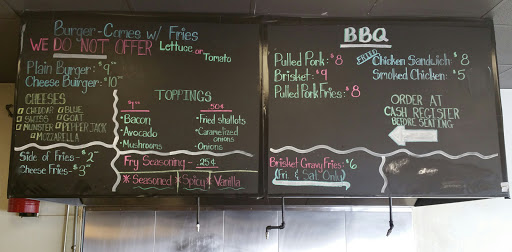 Burger - Comes w/ Fries
WE DO NOT OFFER Lettuce or Tomato
Plain Burger: $9
Cheese Burger: $10
CHEESES
CHEDDAR BLUE
SWISS GOAT
MUNSTER PEPPERJACK
MOZZARELLA
Side of Fries - $2
Cheese Fries - $3
TOPPINGS
Bacon
Avocado
Mushrooms
50¢
Fried shallots
Caramelized onions
Onions
Fry Seasoning - 25¢
* Seasoned * Spicy * Vanilla
BBQ
Pulled Pork: $8
Brisket: $9
Pulled Pork Fries: $8
FRIED Chicken Sandwich: $8
Smoked Chicken: $5
ORDER AT
CASH REGISTER
BEFORE SEATING
Brisket Gravy Fries: $6
(Fri. & Sat. Only)